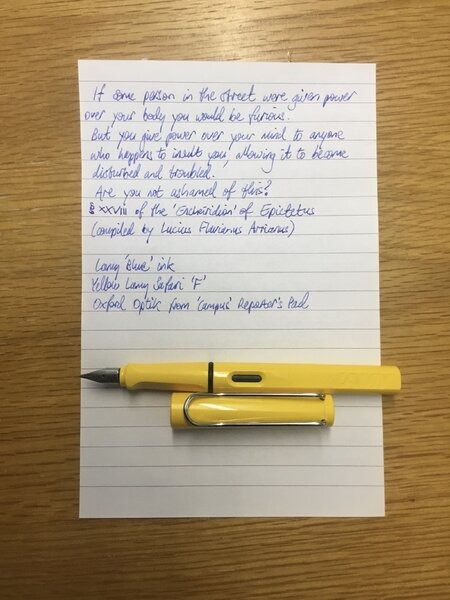 If some person in the street were given power
over your body you would be furious.
But you give power over your mind to anyone
who happens to insult you, allowing it to become
disturbed and troubled.
Are you not ashamed of this?
§ XXVIII of the 'Encheiridion' of Epictetus
(compiled by Lucius Flavianus Arrianus)
Lamy 'Blue' ink
Yellow Lamy Safari 'F'
Oxford Optik from 'Campus' Reporter's Pad